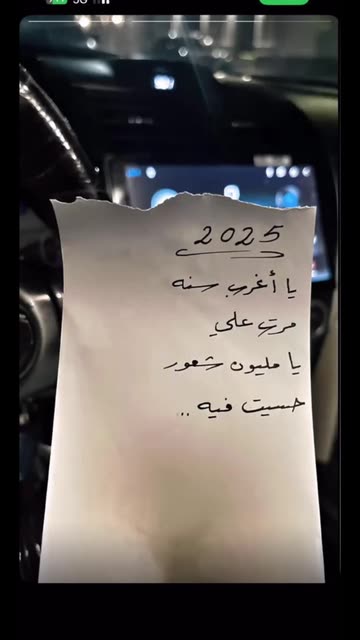 5G
2025
يا أغرب سنه
مرت علي
يا مليون شعور
حسيت فيه ..